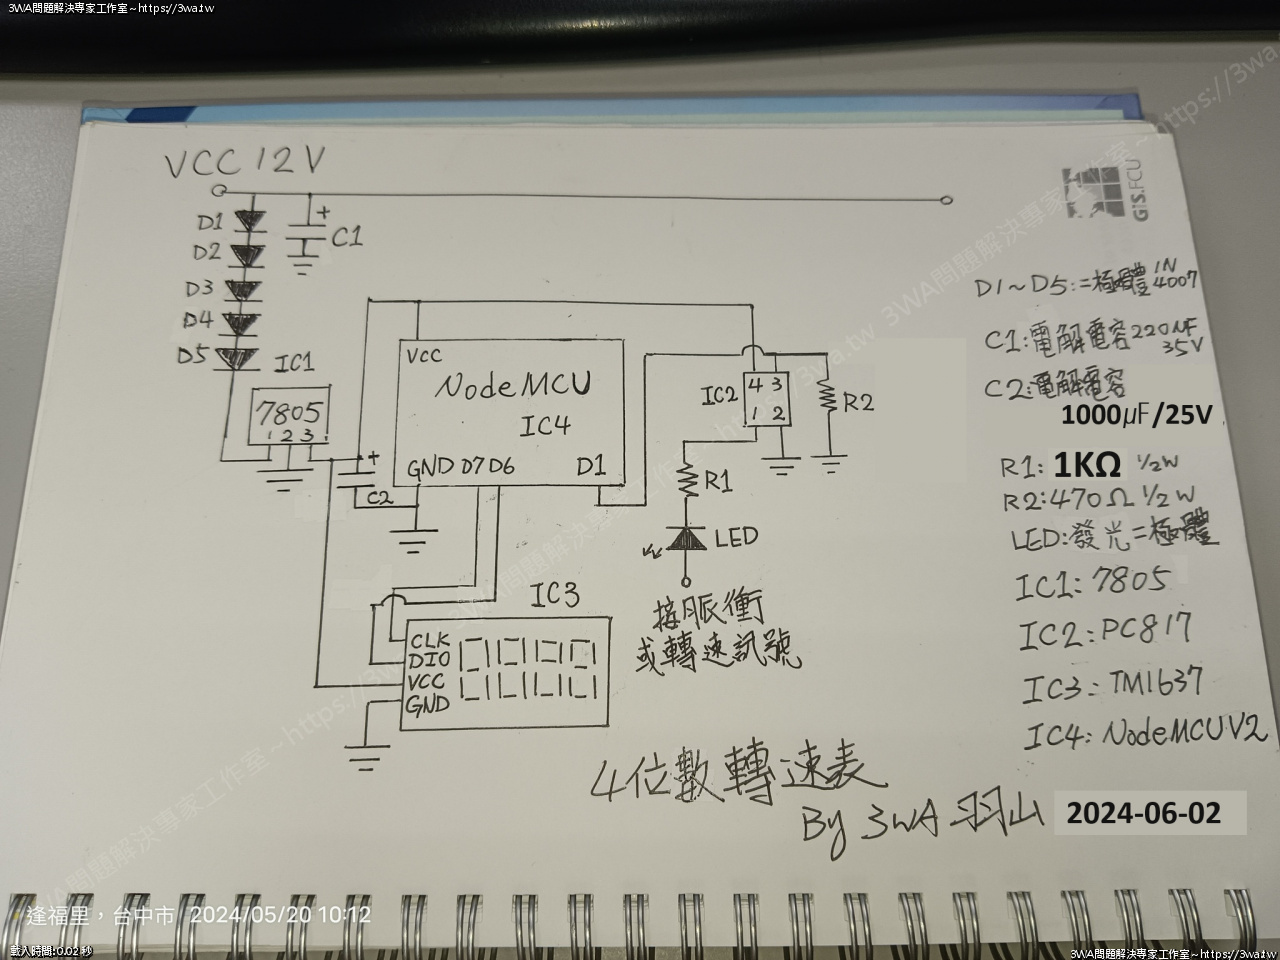 3WA問題解決專家工作室~https://3wa.tw
3WA問題解決專家工作室~https://3wa.tw
VCC 12V
GIS.FCU
D1
D2
D3
D4
D5
C1
IC1
7805
1 2 3
C2
VCC
NodeMCU
IC4
GND D7 D6 D1
IC2
4 3
1 2
R2
R1
LED
接脈衝
或轉速訊號
IC3
CLK
DIO
VCC
GND
D1~D5:二極體 1N4007
C1:電解電容220uF
35V
C2:電解電容
1000μF/25V
R1: 1KΩ 1/2W
R2:470Ω 1/2W
LED:發光二極體
IC1: 7805
IC2: PC817
IC3: TM1637
IC4: NodeMCU V2
4位數轉速表
By 3WA 羽山 2024-06-02
逢福里，台中市 2024/05/20 10:12
載入時間:0.02 秒
3WA問題解決專家工作室~https://3wa.tw